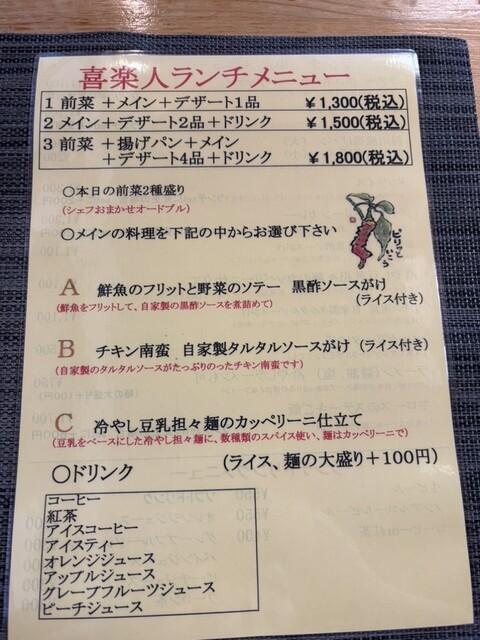 喜楽人ランチメニュー
1 前菜 ＋メイン＋デザート1品 ￥1,300(税込)
2 メイン＋デザート2品＋ドリンク ￥1,500(税込)
3 前菜 ＋揚げパン＋メイン
＋デザート4品＋ドリンク ￥1,800(税込)
○本日の前菜2種盛り
(シェフおまかせオードブル)
○メインの料理を下記の中からお選び下さい
ピリッと
いこう
A 鮮魚のフリットと野菜のソテー 黒酢ソースがけ
(ライス付き)
(鮮魚をフリットして、自家製の黒酢ソースを煮詰めて)
B チキン南蛮 自家製タルタルソースがけ (ライス付き)
(自家製のタルタルソースがたっぷりのったチキン南蛮です)
C 冷やし豆乳担々麺のカッペリーニ仕立て
(豆乳をベースにした冷やし担々麺に、数種類のスパイス使い、麺はカッペリーニで)
(ライス、麺の大盛り＋100円)
○ドリンク
コーヒー
紅茶
アイスコーヒー
アイスティー
オレンジジュース
アップルジュース
グレープフルーツジュース
ピーチジュース